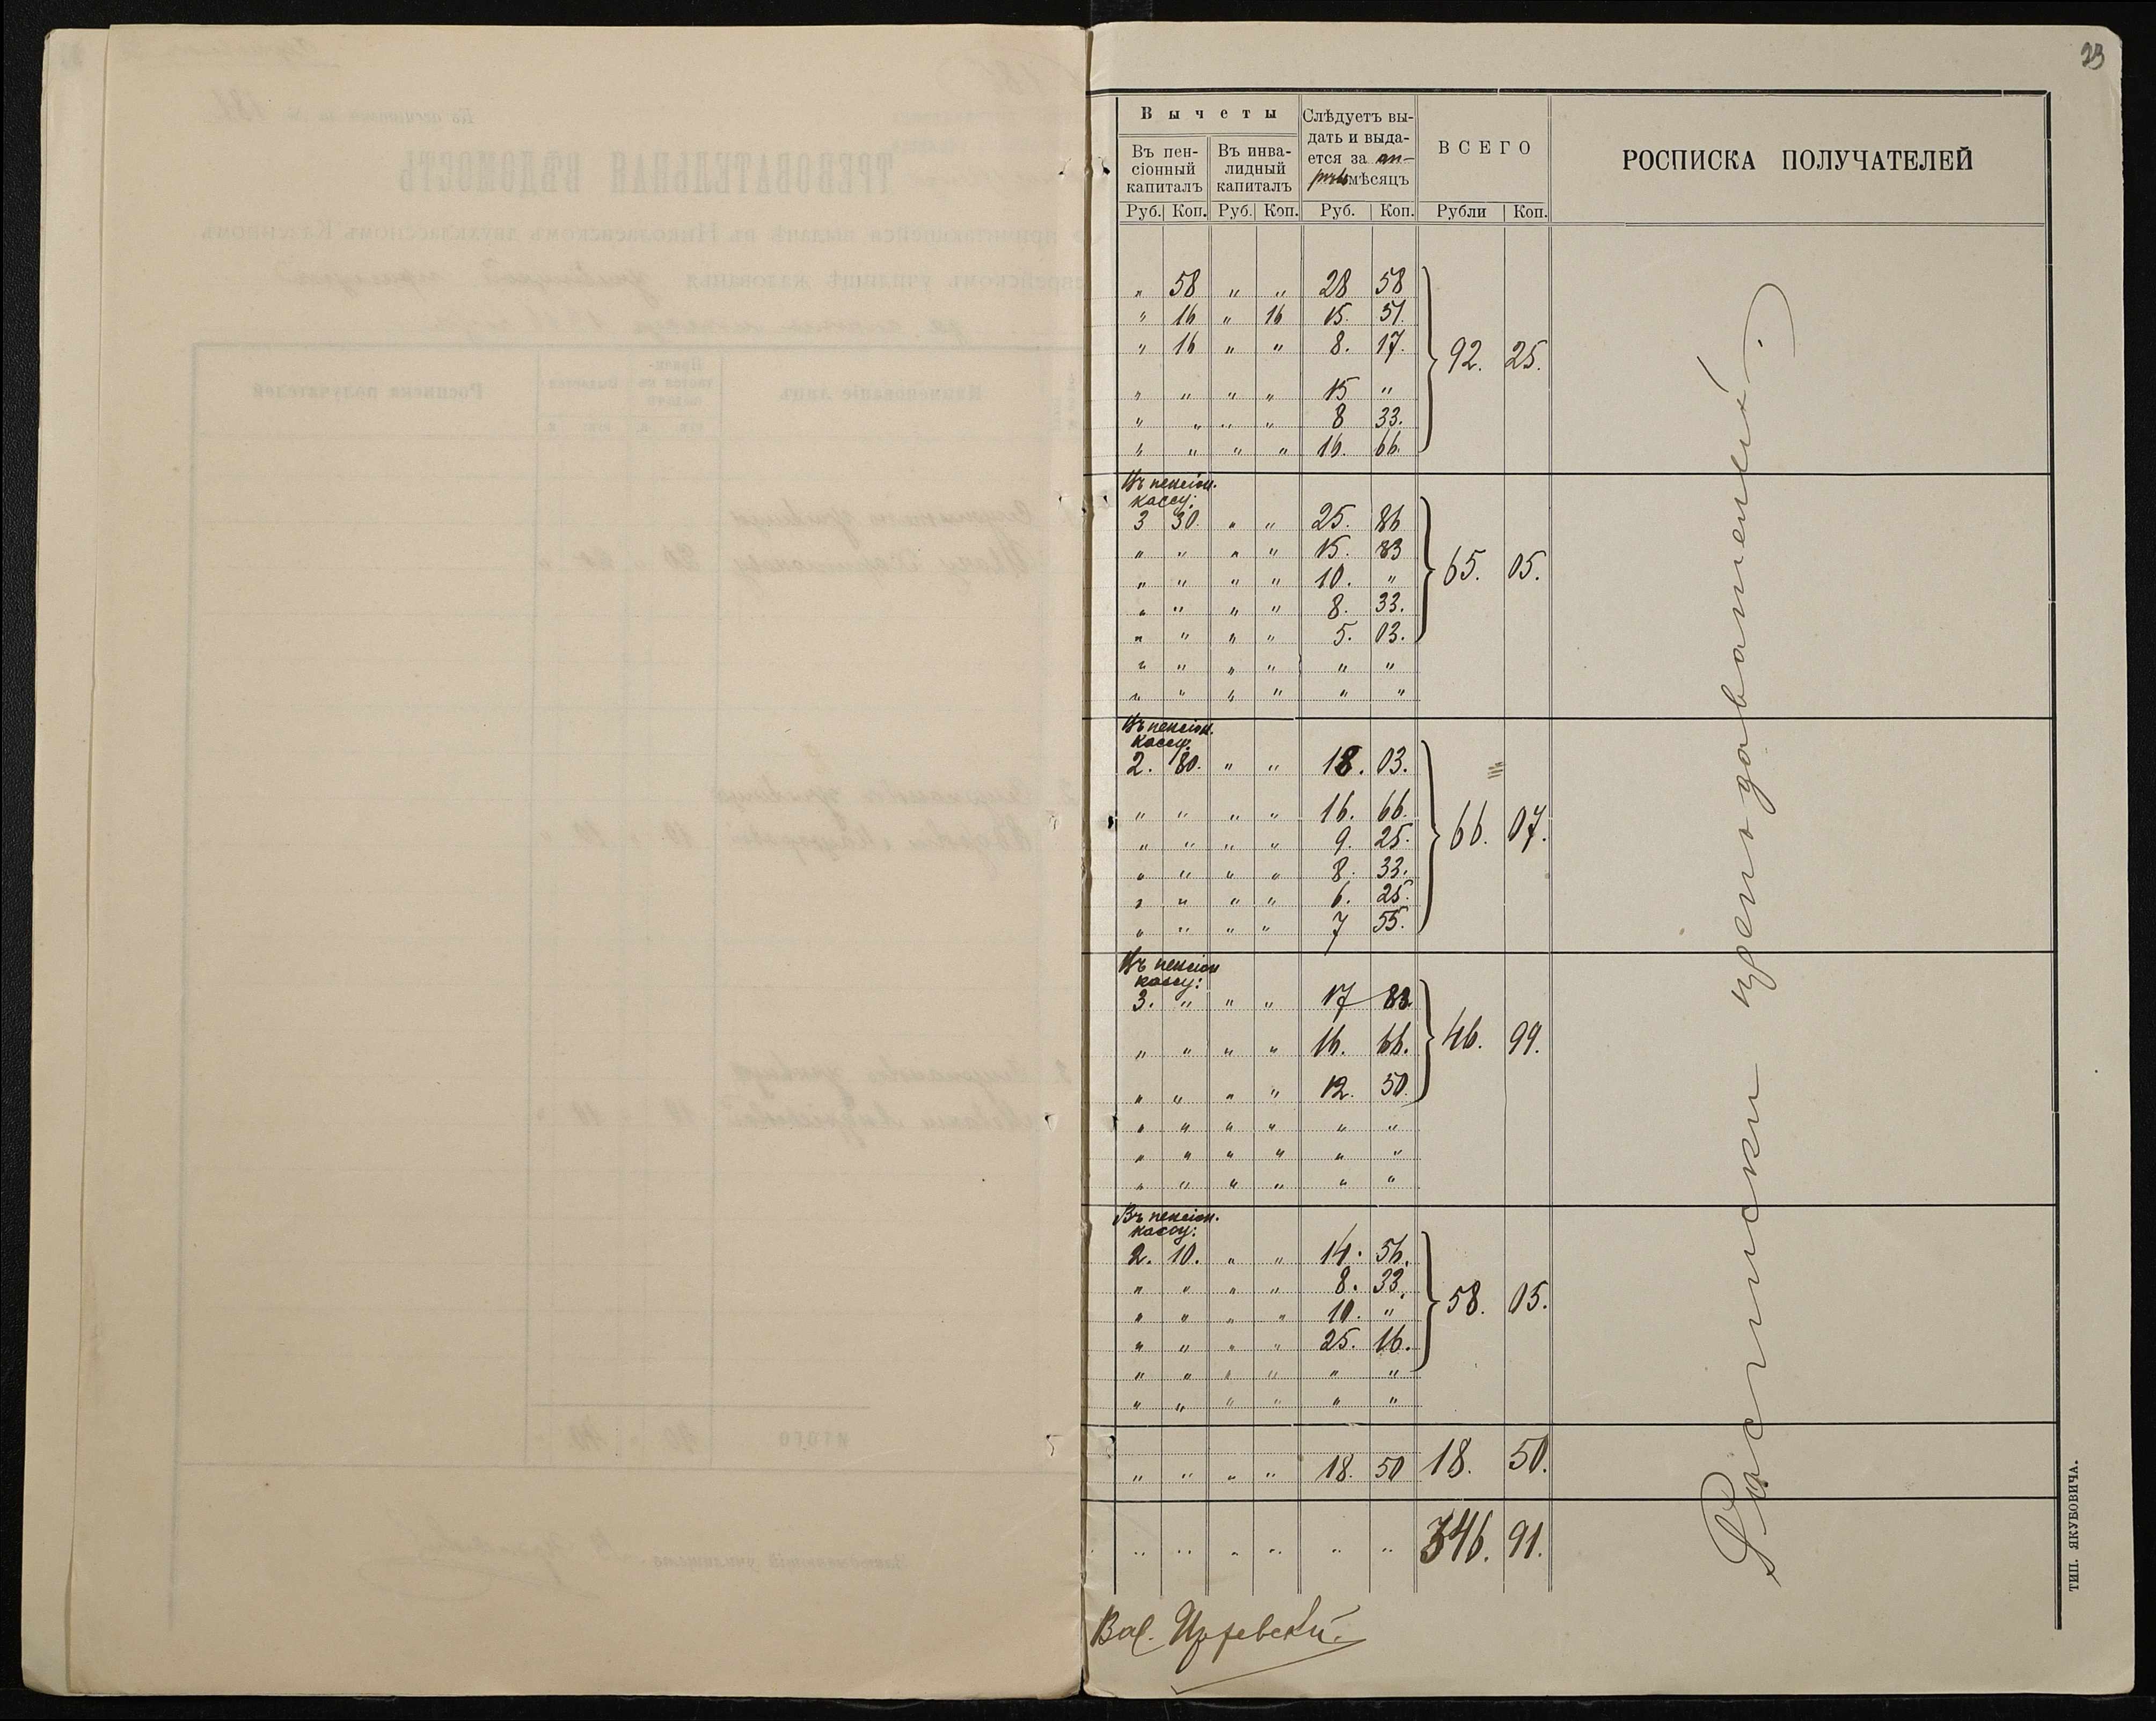 23
Вычеты
Слѣдуетъ выдать и выдается за апрѣль мѣсяцъ
ВСЕГО
РОСПИСКА ПОЛУЧАТЕЛЕЙ
Въ пенсіонный капиталъ
Въ инвалидный капиталъ
Руб. Коп. Руб. Коп. Руб. Коп. Рубли Коп.
„ 58 „ „ 28 58
„ 16 „ 16 15 51.
„ 16 „ „ 8. 17.
92. 25.
„ „ „ „ 15 „
„ „ „ „ 8 33.
„ „ „ „ 16. 66.
Въ пенсіон.
кассу:
3 30. „ „ 25. 86
„ „ „ „ 15. 83
„ „ „ „ 10. „
65. 05.
„ „ „ „ 8. 33.
„ „ „ „ 5. 03.
„ „ „ „ „ „
„ „ „ „ „ „
Въ пенсіон.
кассу.
2. 80. „ „ 18. 03.
„ „ „ „ 16. 66.
„ „ „ „ 9. 25.
66. 07.
„ „ „ „ 8. 33.
„ „ „ „ 6. 25.
„ „ „ „ 7 55.
Въ пенсіон
кассу:
3. „ „ „ 17 83.
„ „ „ „ 16. 66.
46. 99.
„ „ „ „ 12. 50.
„ „ „ „ „ „
„ „ „ „ „ „
„ „ „ „ „ „
Въ пенсіон.
кассу:
2. 10. „ „ 14. 56.
„ „ „ „ 8. 33.
„ „ „ „ 10. „
58. 05.
„ „ „ „ 25. 16.
„ „ „ „ „ „
„ „ „ „ „ „
„ „ „ „ 18. 50 18. 50.
„ „ „ „ „ „ 346. 91.
Росписки преподавателей.
ТИП. ЯКУБОВИЧА.